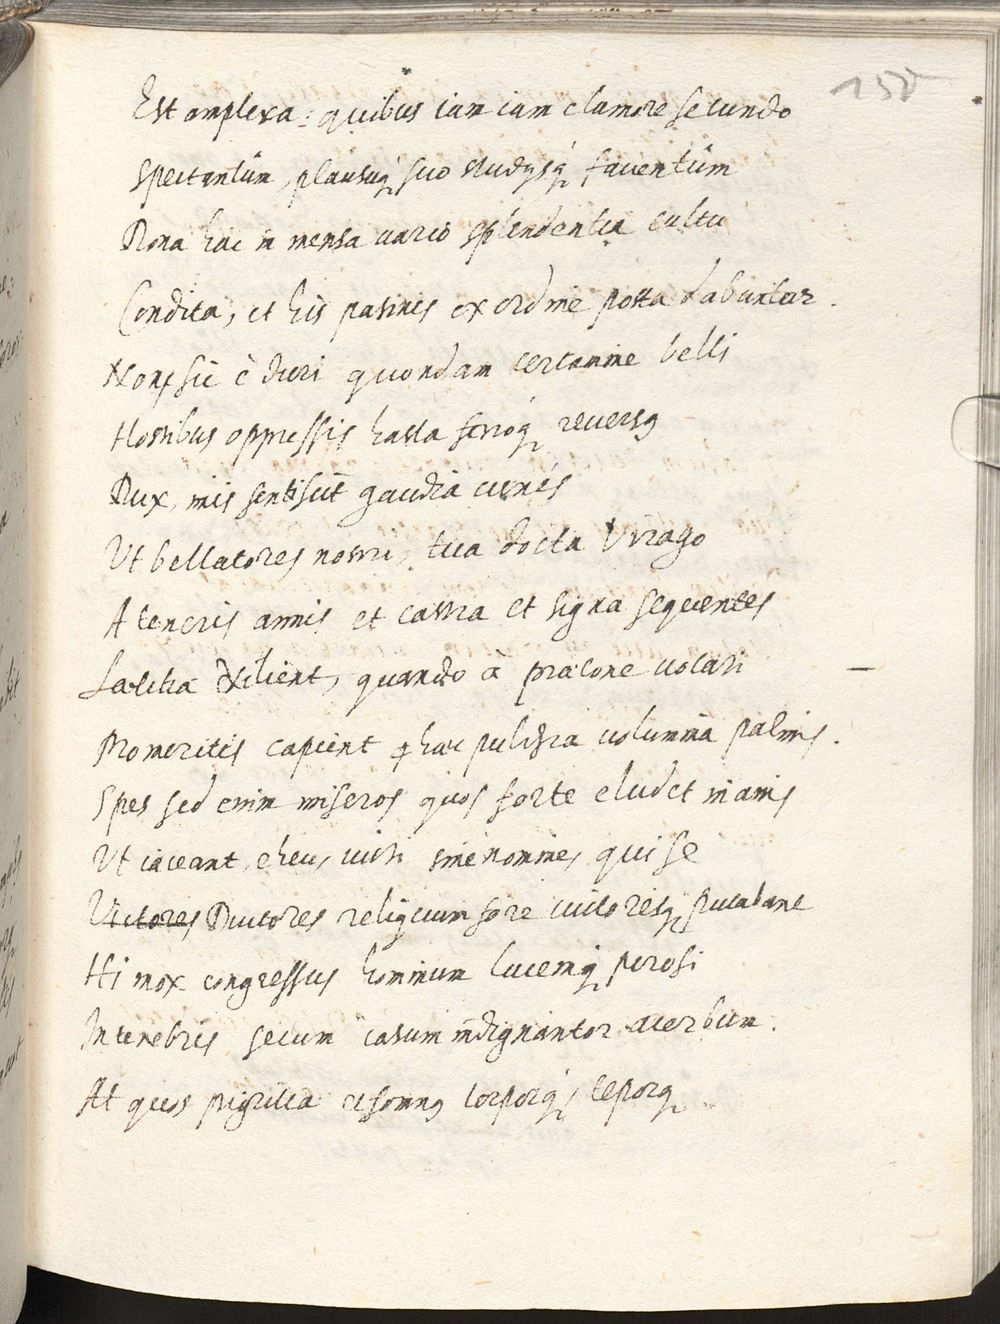 150
Est amplexa: quibus iam iam clamore secundo
Spectantũm, plausuq́ suo studysq́ fauentũm
Dona hac in mensa uario splendentia cultu
Condita, et his patinis ex ordine posta dabuntur.
Non sic è duri quondam certamine belli
Hostibus oppressis hasta ferroq́ reuersus
Dux, mis sentiscit gaudia
Ut bellatores nostri, tua docta Virago
A teneris annis et castra et signa sequentes
Lætitia exilient, quando à præcone uocati
Promeritis capient hac pulchra uolumina palmis.
Spes sed enim miseros quos forte eludet inanis
Ut iaceant, eheu, uicti sine nomine, qui se
Victores Ductores reliqũum fore uictoresq́ putabant
Hi mox congressus hominum lucemq́ perosi
In tenebris secum casum indignantor acerbum.
At quos pigritia et somnus torporq́, teporq́